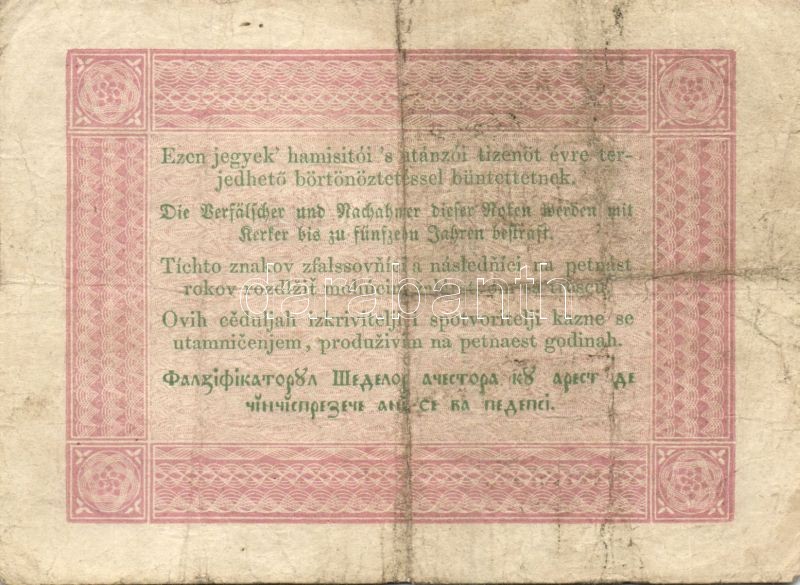 Ezen jegyek' hamisitói 's utánzói tizenöt évre ter-
jedhető börtönöztetéssel büntettetnek.
Die Verfälscher und Nachahmer dieser Noten werden mit
Kerker bis zu fünfzehn Jahren bestraft.
Tíchto znakov zfalssovňíci a následňíci na petnást
rokov
Ovih cěduljah izkrivitelji i spotvoritelji kazne se
utamničenjem, produživim na petnaest godinah.
Фалꙁіфікаторꙋл Шеделор ачестора кꙋ арест де
чінчіспреꙁече ані се ва педепсі.
darabanth